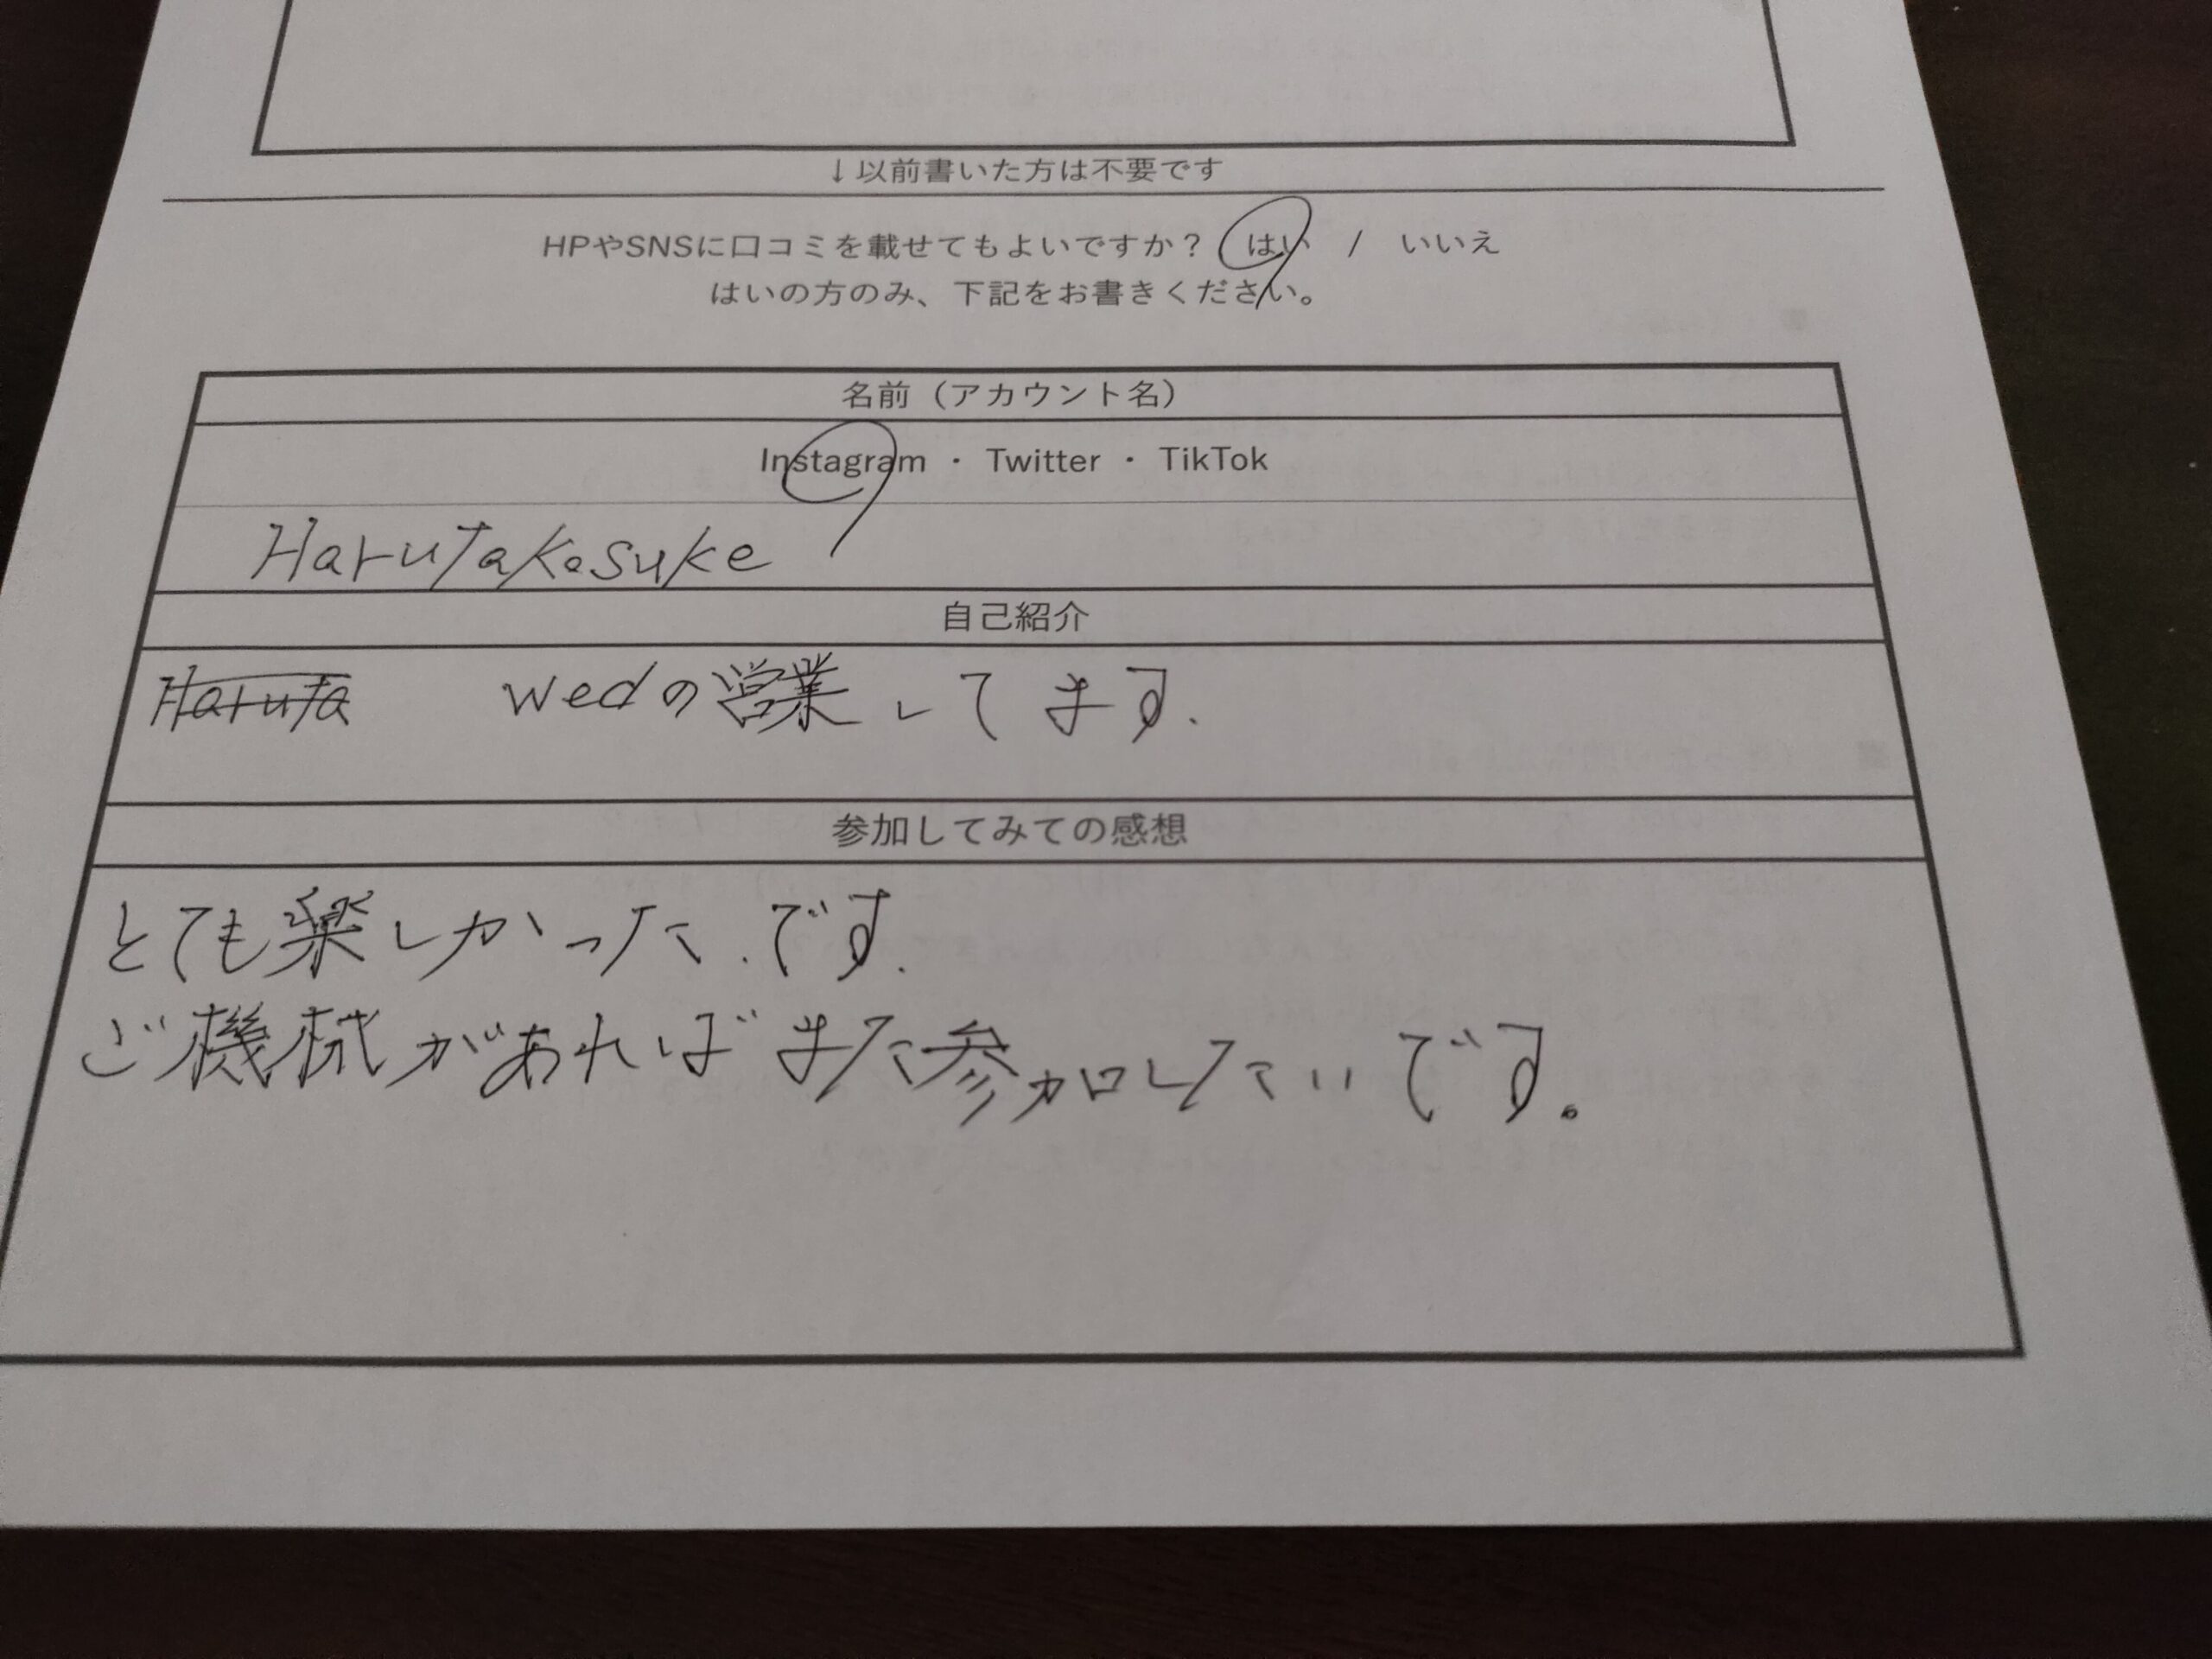 ↓以前書いた方は不要です
HPやSNSに口コミを載せてもよいですか？ はい / いいえ
はいの方のみ、下記をお書きください。
名前（アカウント名）
Instagram ・ Twitter ・ TikTok
Harutakosuke
自己紹介
Haruta wedの営業してます.
参加してみての感想
とても楽しかった.です.
ご機械があればまた参加したいです。